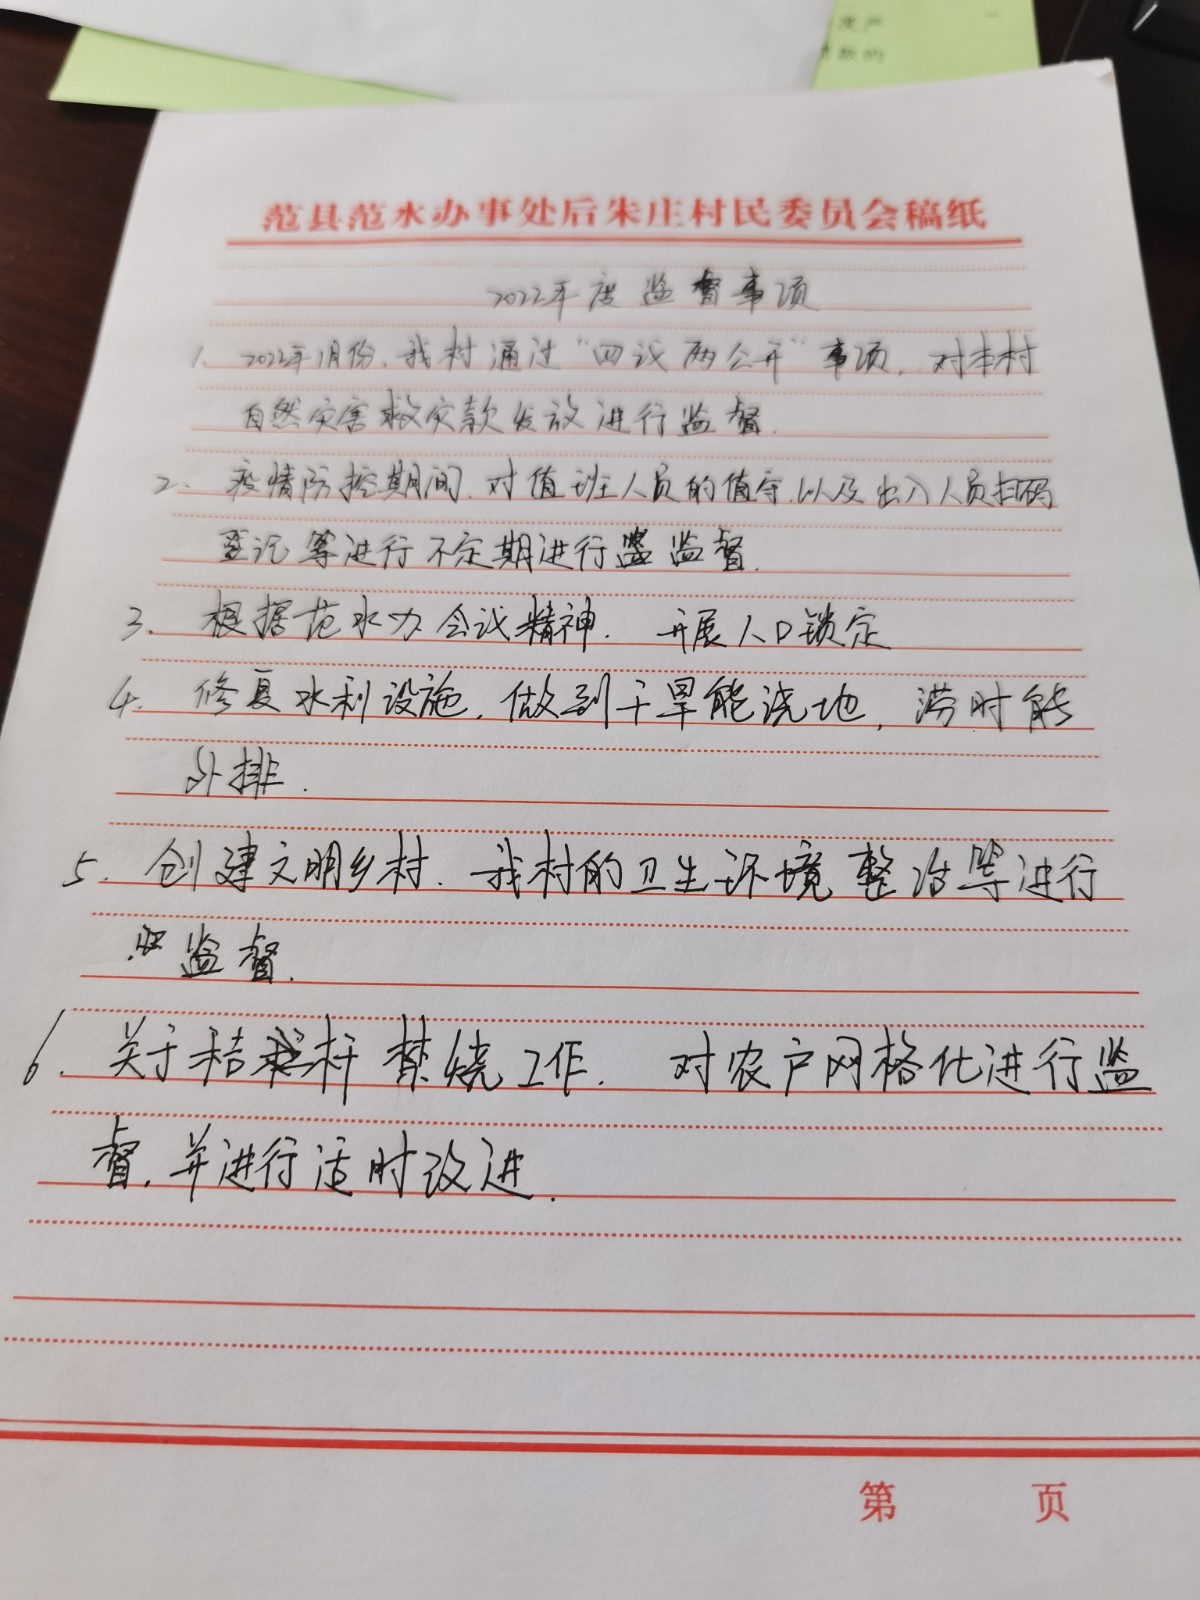 度产
款的
范县范水办事处后朱庄村民委员会稿纸
2022年度监督事项
1. 2022年1月份,我村通过"四议两公开"事项,对本村
自然灾害救灾款发放进行监督.
2. 疫情防控期间,对值班人员的值守,以及出入人员扫码
登记等进行不定期进行监督.
3. 根据范水办会议精神. 开展人口锁定
4. 修复水利设施,做到干旱能浇地,涝时能
外排.
5. 创建文明乡村,我村的卫生环境整治等进行
监督.
6. 关于秸秆禁烧工作. 对农户网格化进行监
督,并进行适时改进.
第 页